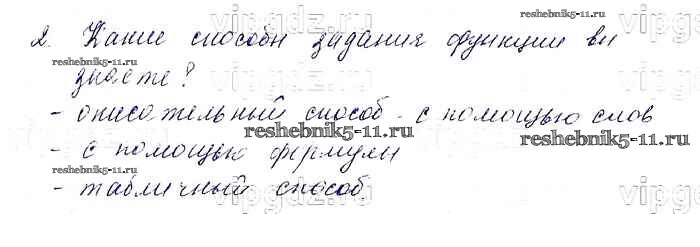 2. Какие способы задания функции вы
знаете?
- описательный способ - с помощью слов
- с помощью формулы
- табличный способ
vipgdz.ru
reshebnik5-11.ru
reshebnik5-11.ru
reshebnik5-11.ru
reshebnik5-11.ru
reshebnik5-11.ru
vipgdz.ru